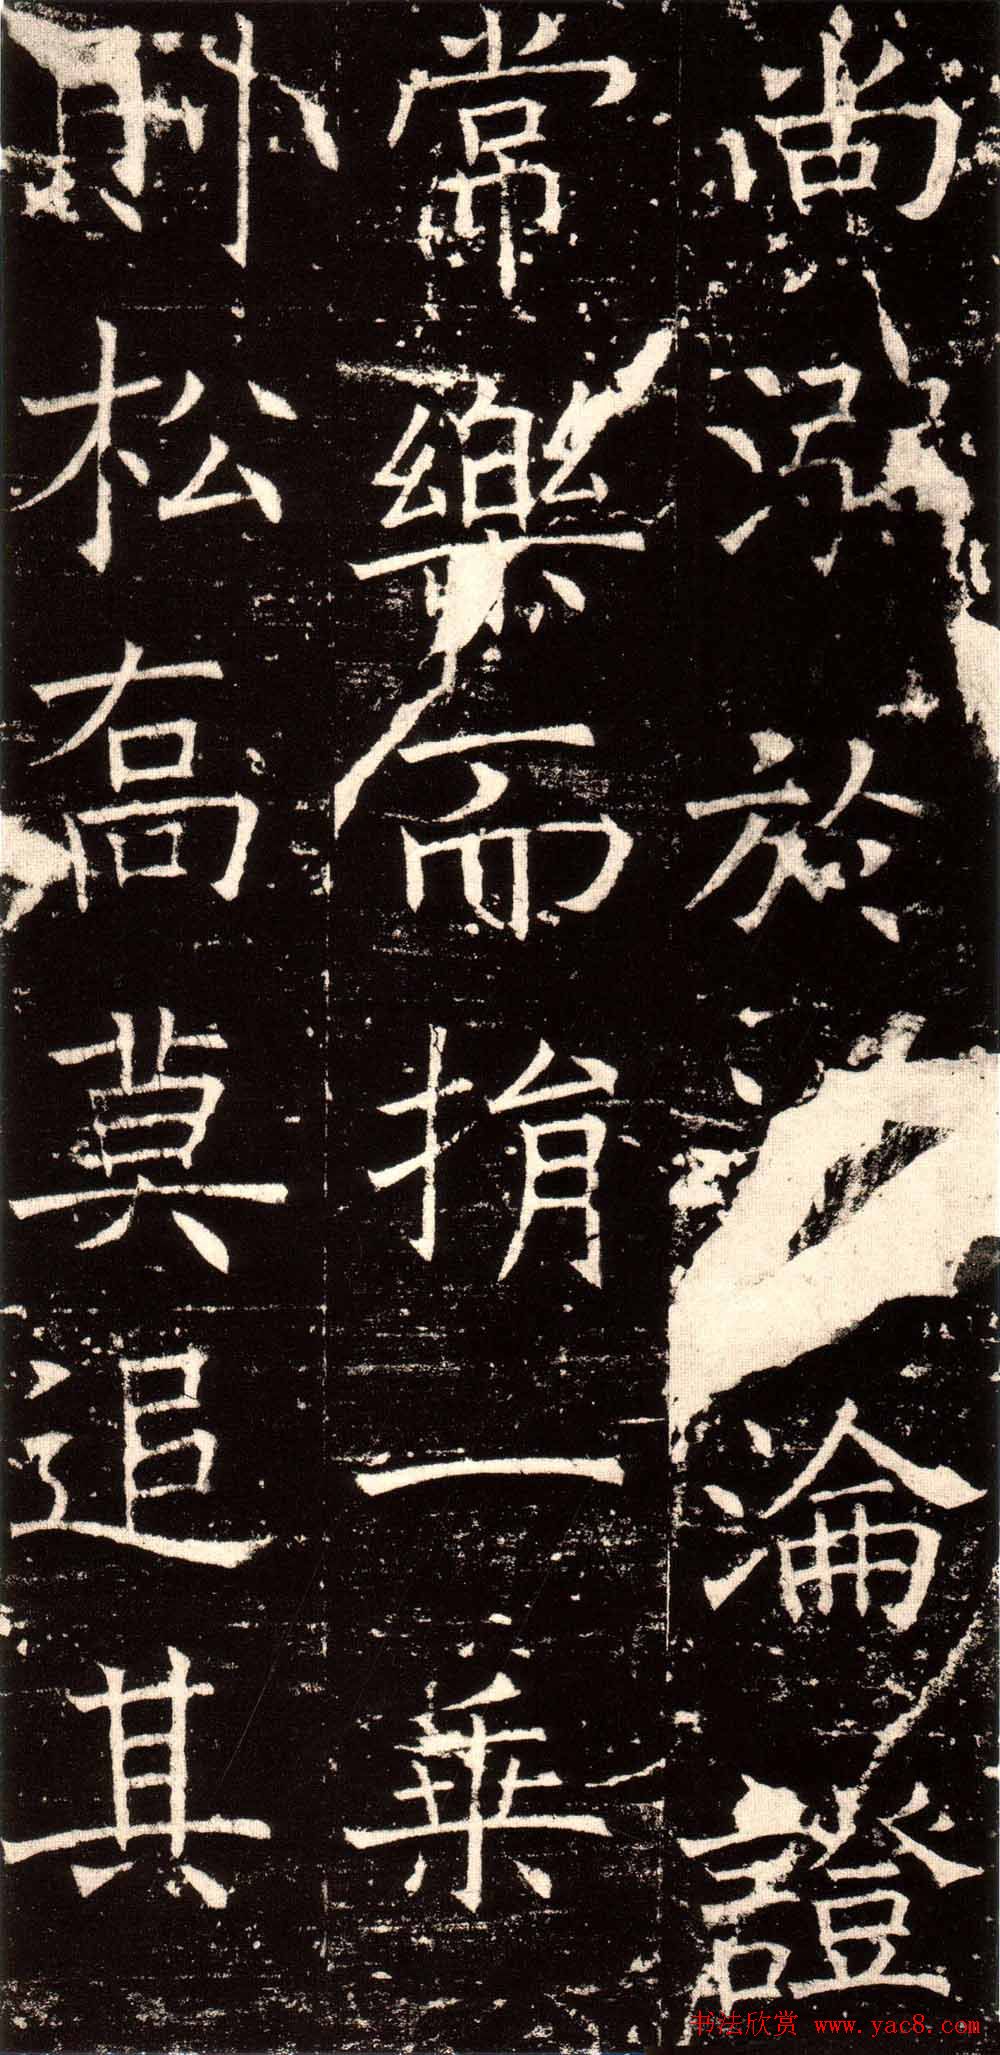 尚溺於淪證
常樂而捐一乘
則松高莫追其
书法欣赏 www.yac8.com